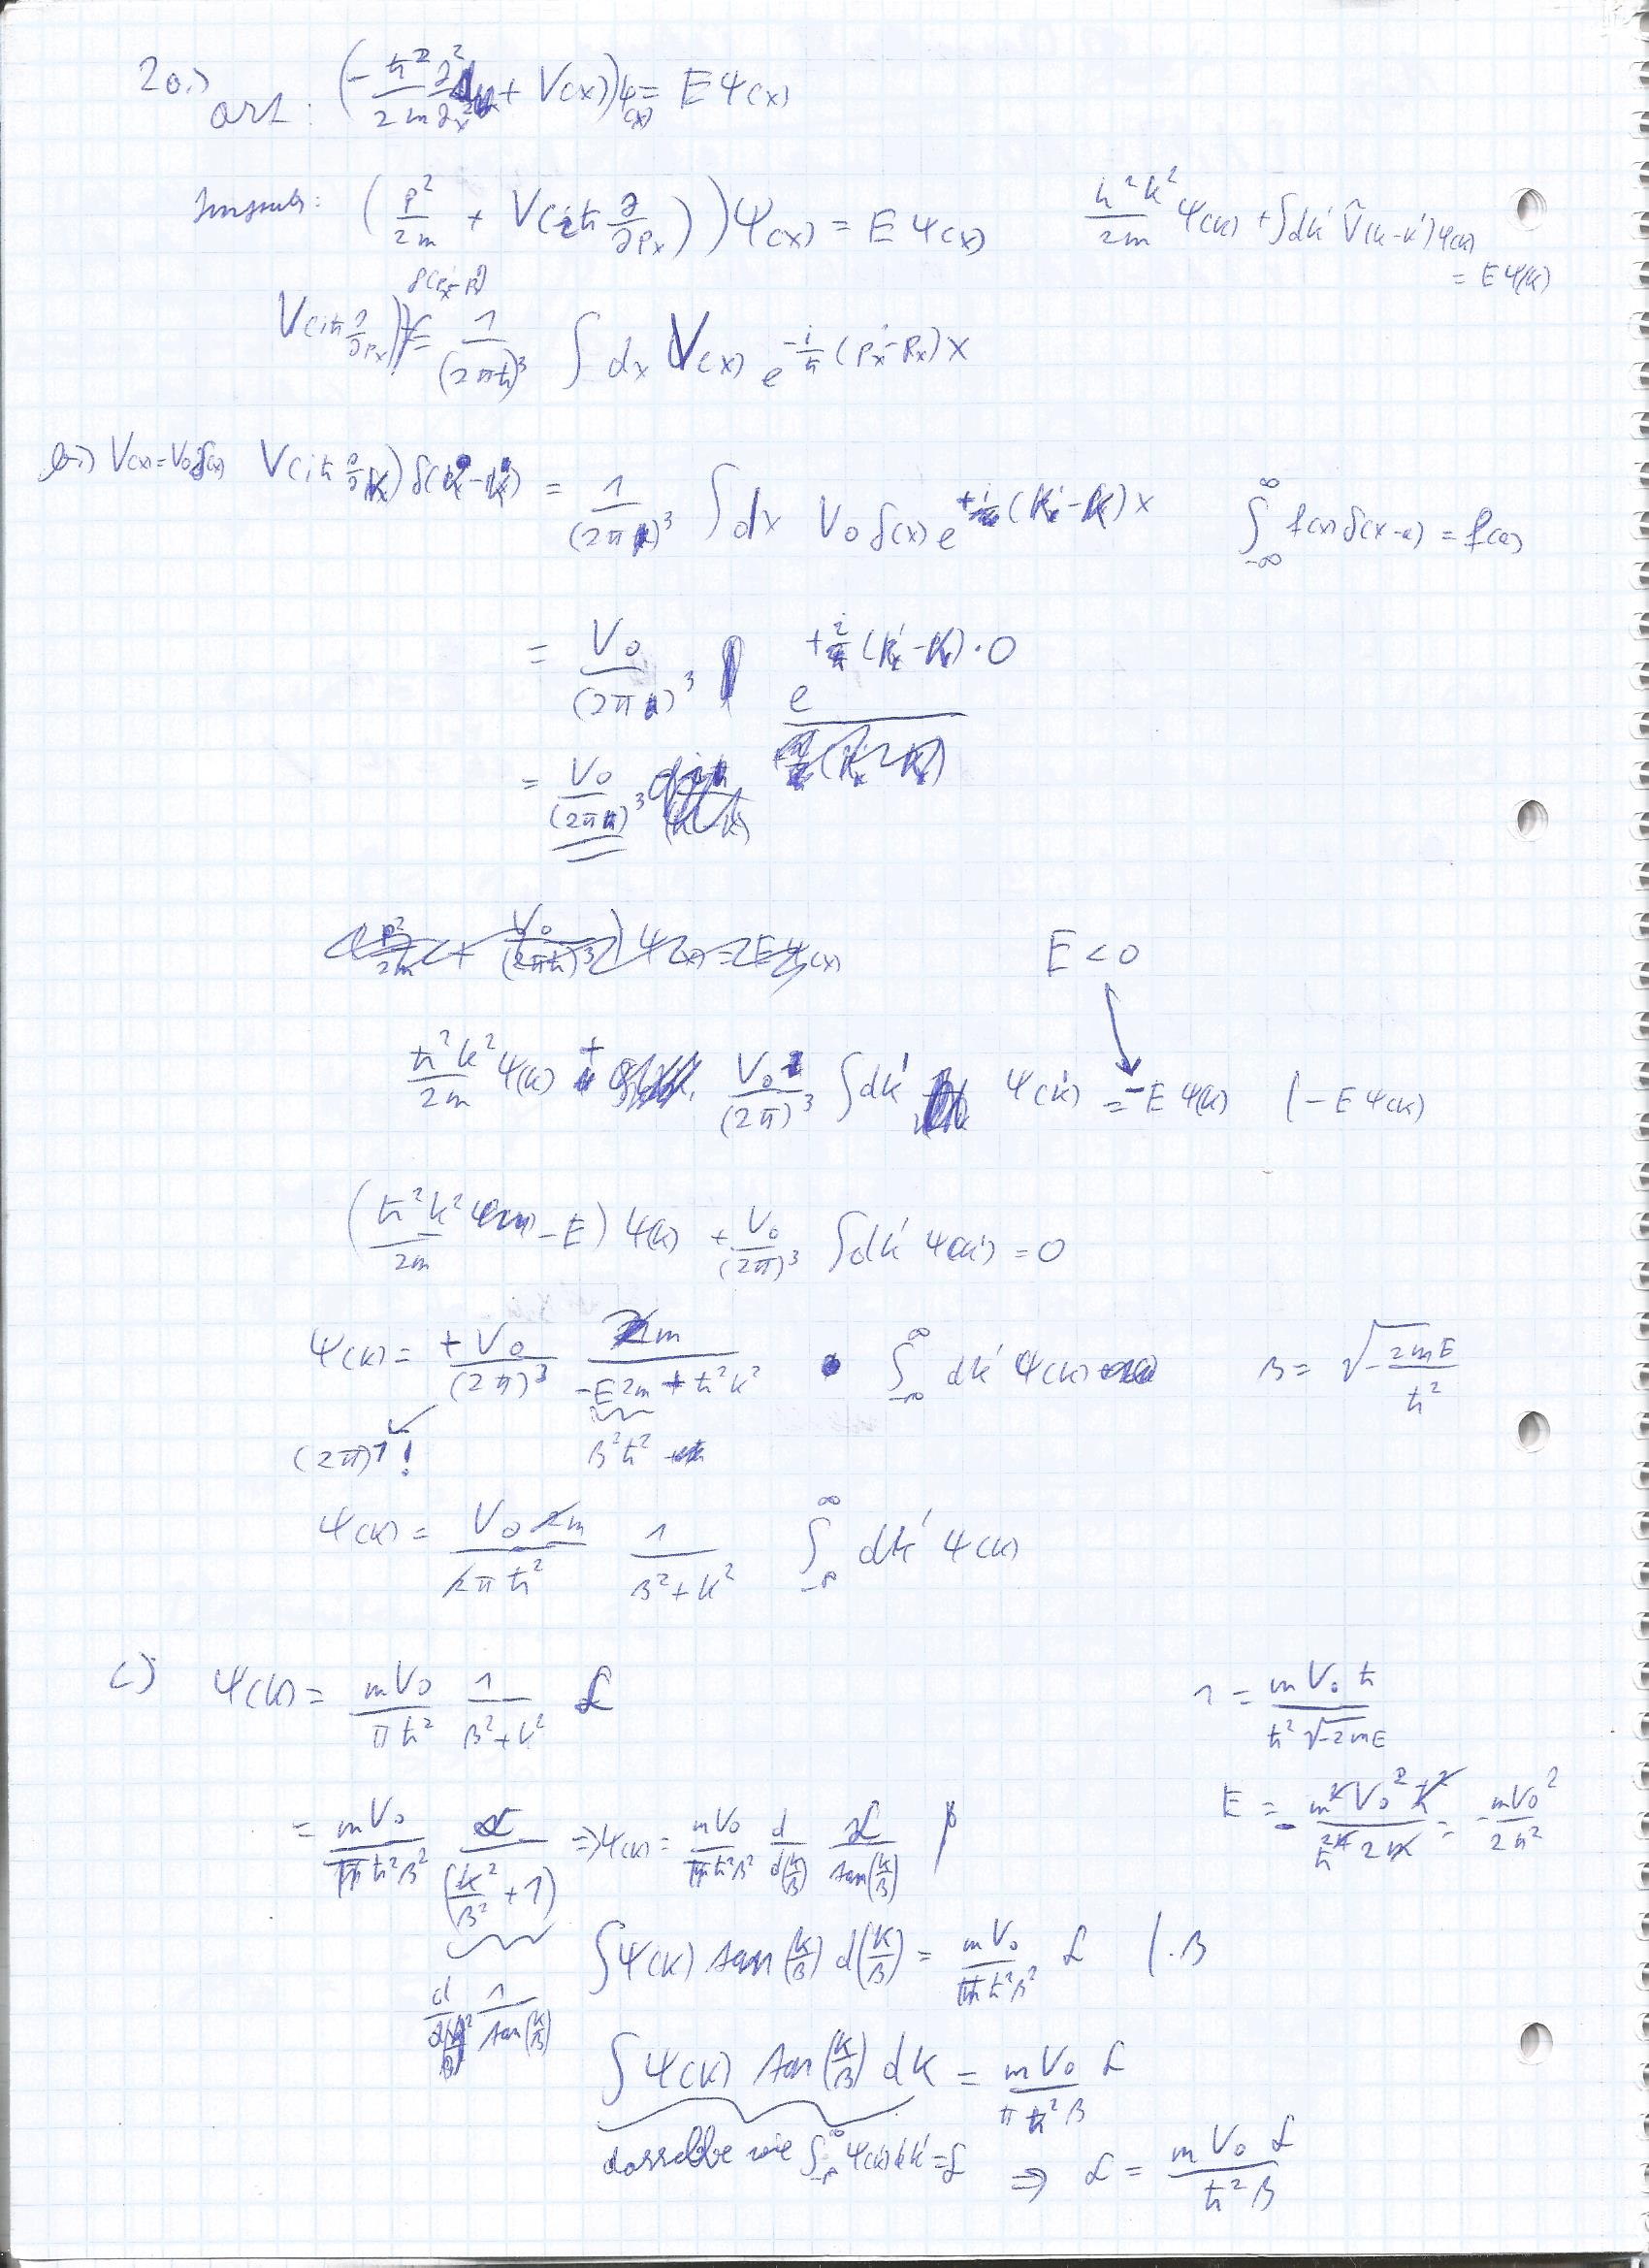 2a.)
Ort: (-ħ²/2m ∂²/∂x² + V(x)) ψ(x) = E ψ(x)
Impuls: (p²/2m + V(iħ ∂/∂pₓ)) ψ(x) = E ψ(x)
ħ²k²/2m ψ(k) + ∫dk' Ṽ(k-k') ψ(k)
= E ψ(k)
V(iħ ∂/∂pₓ) δ(pₓ'-pₓ) = 1/(2πħ)³ ∫ dx V(x) e^{-i/ħ (pₓ'-pₓ)x}
b.) V(x)=V₀δ(x) V(iħ ∂/∂k) δ(k-k') = 1/(2π)³ ∫ dx V₀ δ(x) e^{+i(k'-k)x}
∫_{-∞}^{∞} f(x) δ(x-a) = f(a)
= V₀/(2π)³ e^{+i(k'-k)·0}
= V₀/(2π)³
(p²/2m + V₀/(2πħ)³) ψ(x) = E ψ(x)
E < 0
ħ²k²/2m ψ(k) + V₀/(2π)³ ∫dk' ψ(k') = -E ψ(k) | -E ψ(k)
(ħ²k²/2m - E) ψ(k) + V₀/(2π)³ ∫dk' ψ(k') = 0
ψ(k) = +V₀/(2π)³ 2m/(-E2m + ħ²k²) ∫_{-∞}^{∞} dk' ψ(k)
β = √(-2mE/ħ²)
(2π)¹! β²ħ²
ψ(k) = V₀2m/2πħ² 1/(β²+k²) ∫_{-∞}^{∞} dk' ψ(k)
c) ψ(k) = mV₀/πħ² 1/(β²+k²) L
1 = mV₀ħ/ħ²√-2mE
E = -m²V₀²ħ²/ħ⁴2m = -mV₀²/2ħ²
= mV₀/πħ²β² L/(k²/β²+1) ⇒ ψ(k) = mV₀/πħ²β² d/d(k/β) L/tan(k/β)
d/d(k/β) 1/tan(k/β)
∫ψ(k) tan(k/β) d(k/β) = mV₀/πħ²β² L | ·β
∫ψ(k) tan(k/β) dk = mV₀/πħ²β L
dasselbe wie ∫_{-∞}^{∞} ψ(k')dk' = L ⇒ L = mV₀L/ħ²β